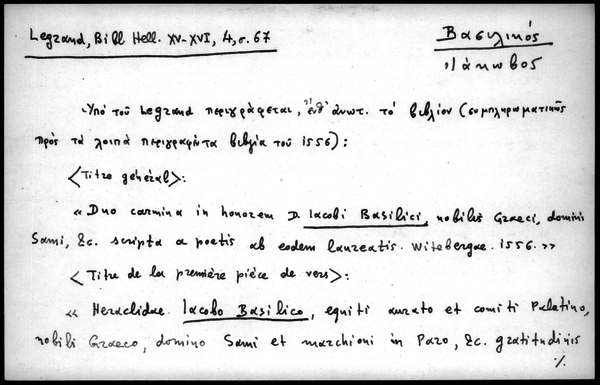 Legrand, Bibl Hell. XV-XVI, 4, σ. 67
Βασιλικός
Ἰάκωβος
Ὑπό τοῦ Legrand περιγράφεται, ἔνθ' ἀνωτ. τό βιβλίον (συμπληρωματικῶς
πρός τά λοιπά περιγραφέντα βιβλία τοῦ 1556):
<Titre général>:
« Duo carmina in honorem D. Iacobi Basilici, nobilis Graeci, domini
Sami, &c. scripta a poetis ab eodem laureatis. Witebergae. 1556. »
<Titre de la première pièce de vers>:
« Heraclidae. Iacobo Basilico, equiti aurato et comiti Palatino,
nobili Graeco, domino Sami et marchioni in Paro, &c. gratitudinis
./.